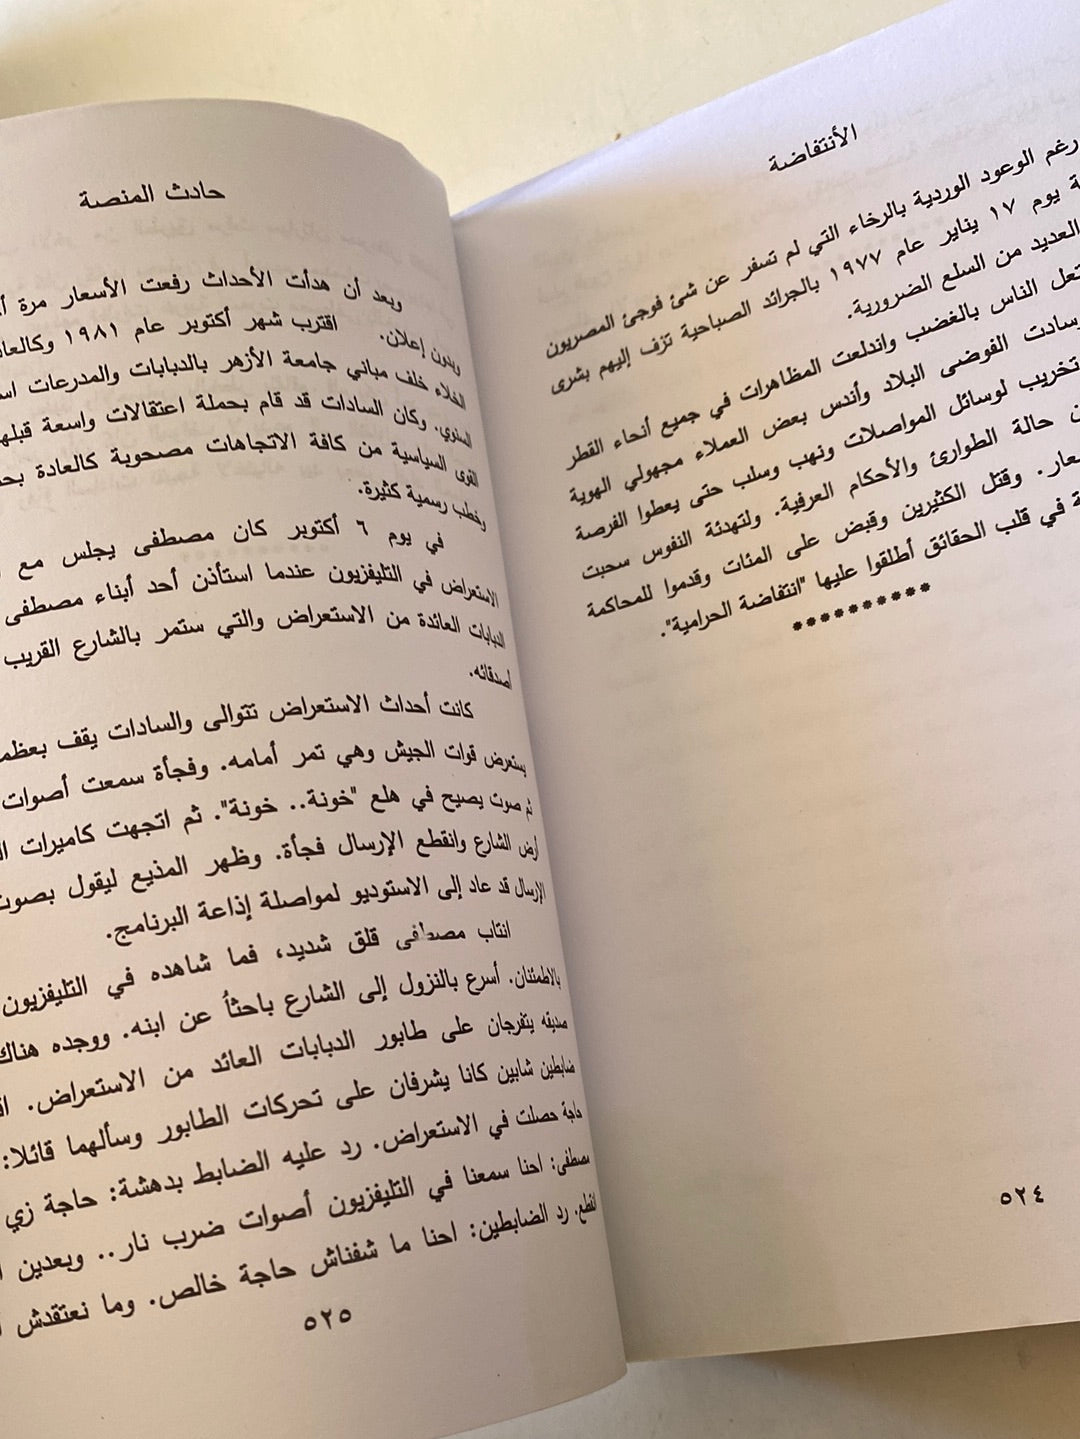 الأنتفاضة
رغم الوعود الوردية بالرخاء التي لم تسفر عن شئ فوجئ المصريون
يوم ١٧ يناير عام ١٩٧٧ بالجرائد الصباحية تزف إليهم بشرى
العديد من السلع الضرورية.
الناس بالغضب واندلعت المظاهرات في جميع أنحاء القطر
وسادت الفوضى البلاد وأندس بعض العملاء مجهولي الهوية
تخريب لوسائل المواصلات ونهب وسلب حتى يعطوا الفرصة
حالة الطوارئ والأحكام العرفية. ولتهدئة النفوس سحبت
وقتل الكثيرين وقبض على المئات وقدموا للمحاكمة
في قلب الحقائق أطلقوا عليها "انتفاضة الحرامية".
**********
٥٢٤
حادث المنصة
وبعد أن هدأت الأحداث رفعت الأسعار مرة
وبدون إعلان.
اقترب شهر أكتوبر عام ١٩٨١
الخلاء خلف مباني جامعة الأزهر بالدبابات والمدرعات
السنوي. وكان السادات قد قام بحملة اعتقالات واسعة
القوى السياسية من كافة الاتجاهات مصحوبة كالعادة
وخطب رسمية كثيرة.
في يوم ٦ أكتوبر كان مصطفى يجلس مع
الاستعراض في التليفزيون عندما استأذن أحد أبناء مصطفى
الدبابات العائدة من الاستعراض والتي ستمر بالشارع القريب
أصدقائه.
كانت أحداث الاستعراض تتوالى والسادات يقف
يستعرض قوات الجيش وهي تمر أمامه. وفجأة سمعت أصوات
ثم صوت يصيح في هلع "خونة.. خونة". ثم اتجهت كاميرات
أرض الشارع وانقطع الإرسال فجأة. وظهر المذيع ليقول بصوت
الإرسال قد عاد إلى الاستوديو لمواصلة إذاعة البرنامج.
انتاب مصطفى قلق شديد، فما شاهده في التليفزيون
بالاطمئنان. أسرع بالنزول إلى الشارع باحثاً عن ابنه. ووجده هناك
صديقه يتفرجان على طابور الدبابات العائد من الاستعراض.
ضابطين شابين كانا يشرفان على تحركات الطابور وسألهما قائلا:
حاجة حصلت في الاستعراض. رد عليه الضابط بدهشة: حاجة زي
مصطفى: احنا سمعنا في التليفزيون أصوات ضرب نار.. وبعدين
انقطع. رد الضابطين: احنا ما شفناش حاجة خالص. وما نعتقدش
٥٢٥